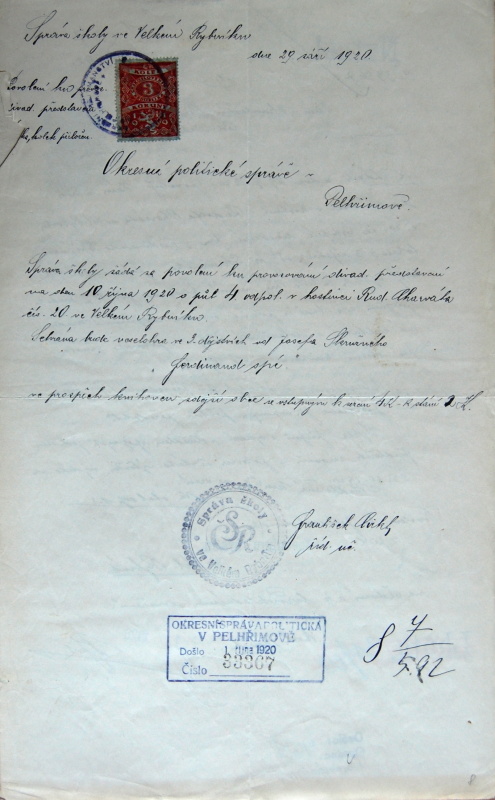 Správa školy ve Velkém Rybníku
dne 29 září 1920
Povolení ku prov.
divad. představení
kolek
KOLEK
3
KORUNY
Okresní politické správě
v
Pelhřimově.
Správa školy žádá za povolení ku provozování divad. představení
na den 10 října 1920 o půl 4 odpol. v hostinci Rud.
čís. 20 ve Velkém Rybníku.
Sehrána bude veselohra ve 3. dějstvích od Josefa
"Ferdinand spí"
ve prospěch knihoven zdejší obce se vstupným k sezení 4K. k stání 2K.
Správa školy
ve Velkém Rybníku
ŠR
František
říd. uč.
OKRESNÍ SPRÁVA POLITICKÁ
V PELHŘIMOVĚ
Došlo 1. října 1920
Číslo 33367
8 4/592
8